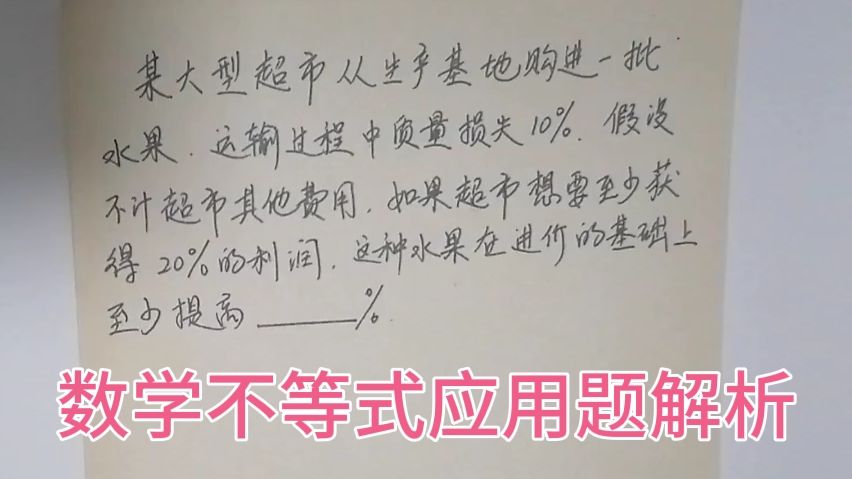 某大型超市从生产基地购进一批
水果.运输过程中质量损失10%.假设
不计超市其他费用.如果超市想要至少获
得20%的利润.这种水果在进价的基础上
至少提高______%.
数学不等式应用题解析